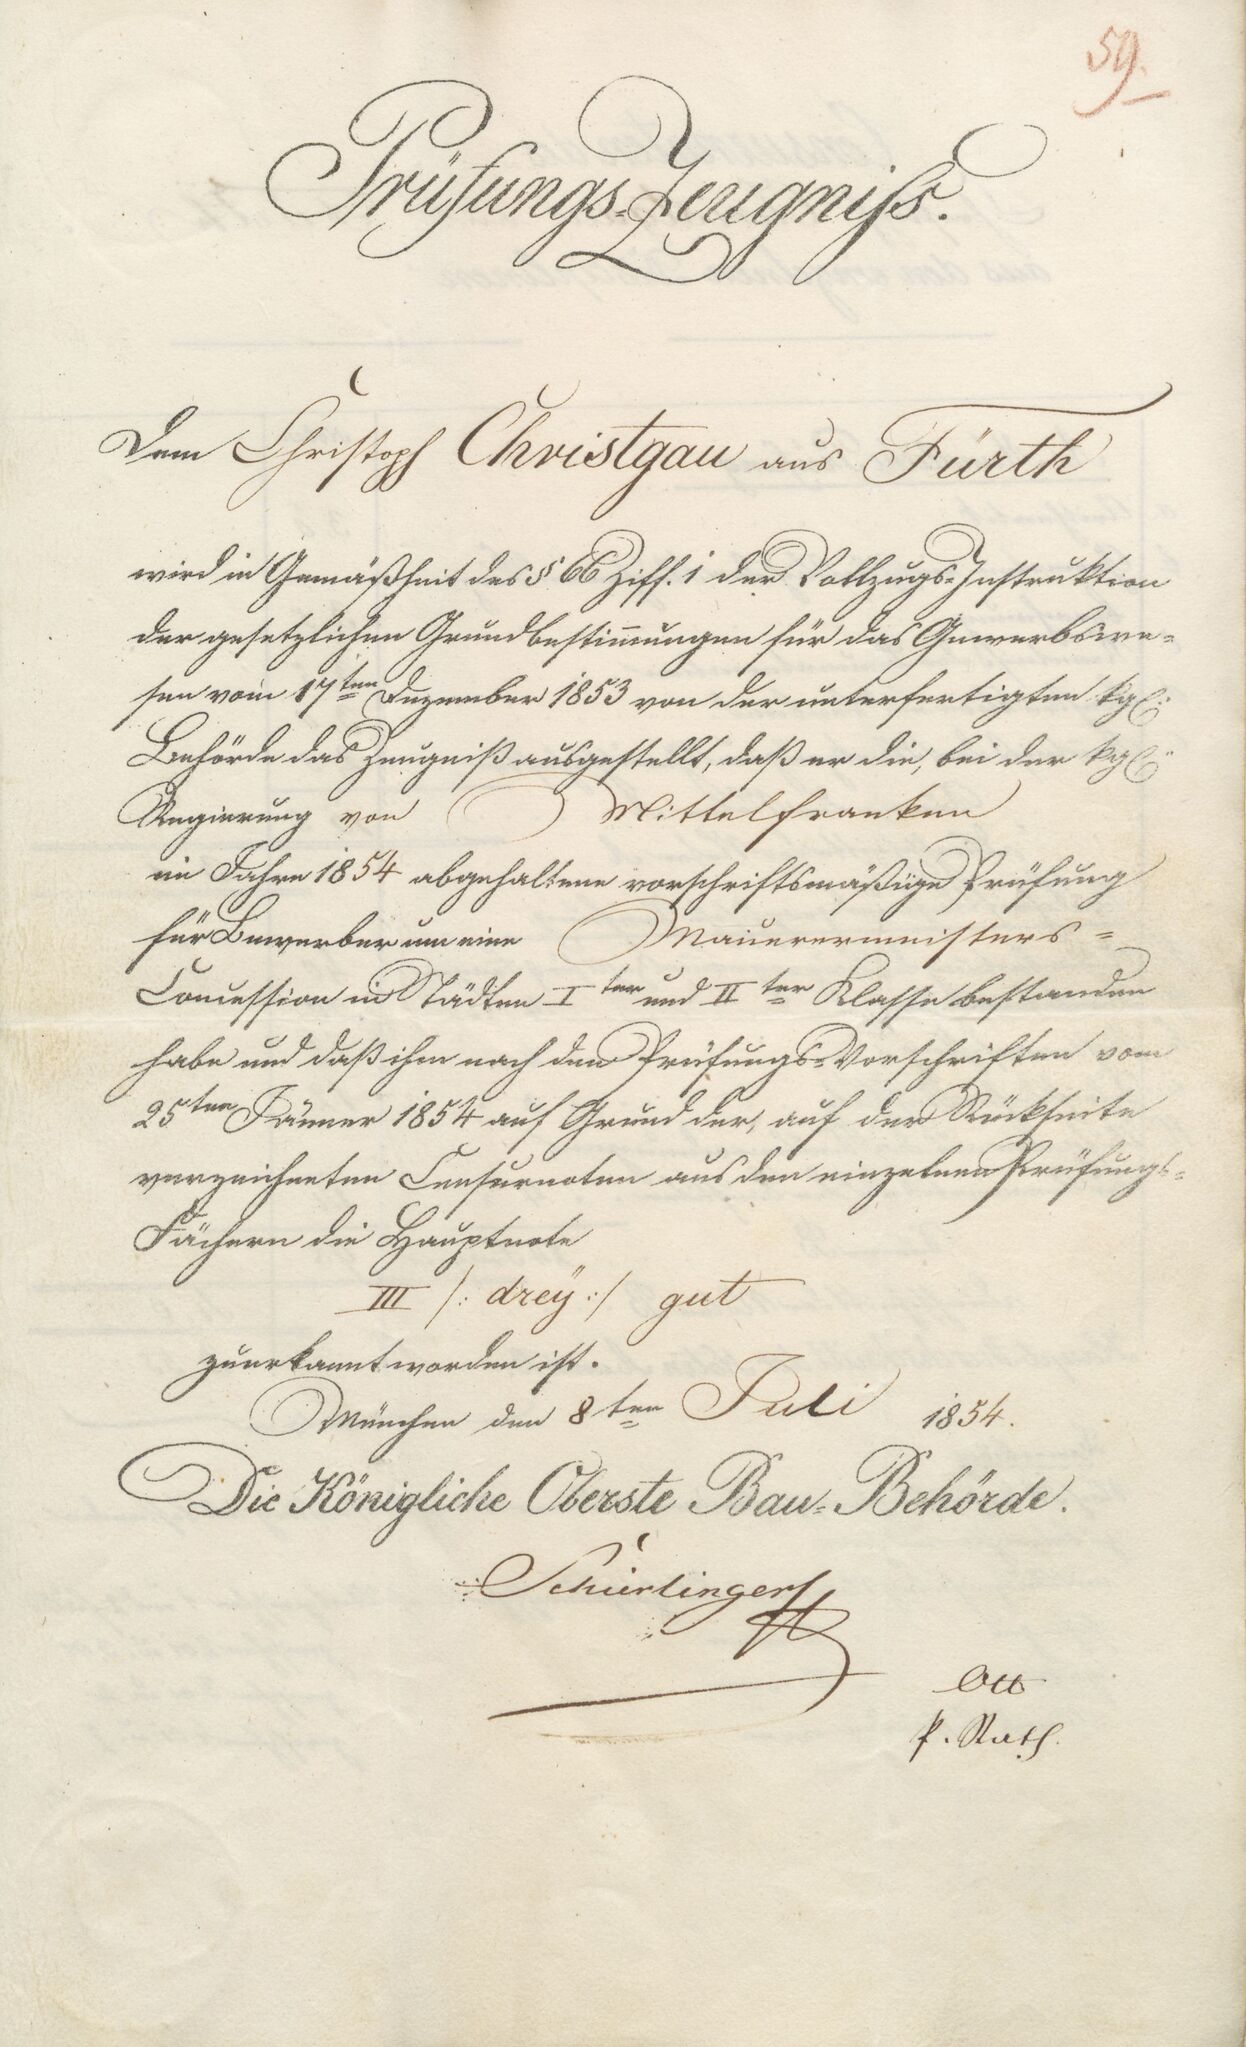 59.
Prüfungs-Zeugniss.
Dem Christoph Christgau aus Fürth
wird in Gemäßheit des § 66 Ziff. 1 der Vollzugs-Instruktion
der gesetzlichen Grundbestim̅ungen für das Gewerbswe-
sen vom 17ten Dezember 1853 von der unterfertigten kgl:
Behörde das Zeugniß ausgestellt, daß er die, bei der kgl:
Regierung von Mittelfranken
im Jahre 1854 abgehaltene vorschriftsmäßige Prüfung
für Bewerber um eine Maurermeisters-
Concession in Städten Iter und IIter Klasse bestanden
habe und daß ihm nach den Prüfungs-Vorschriften vom
25ten Jänner 1854 auf Grund der, auf der Rückseite
verzeichneten Censurnoten aus den einzelnen Prüfungs-
Fächern die Hauptnote
III /: drey :/ gut
zuerkannt worden ist.
München den 8ten Juli 1854.
Die Königliche Oberste Bau-Behörde.
Schierlinger
Ott
p. Rath.